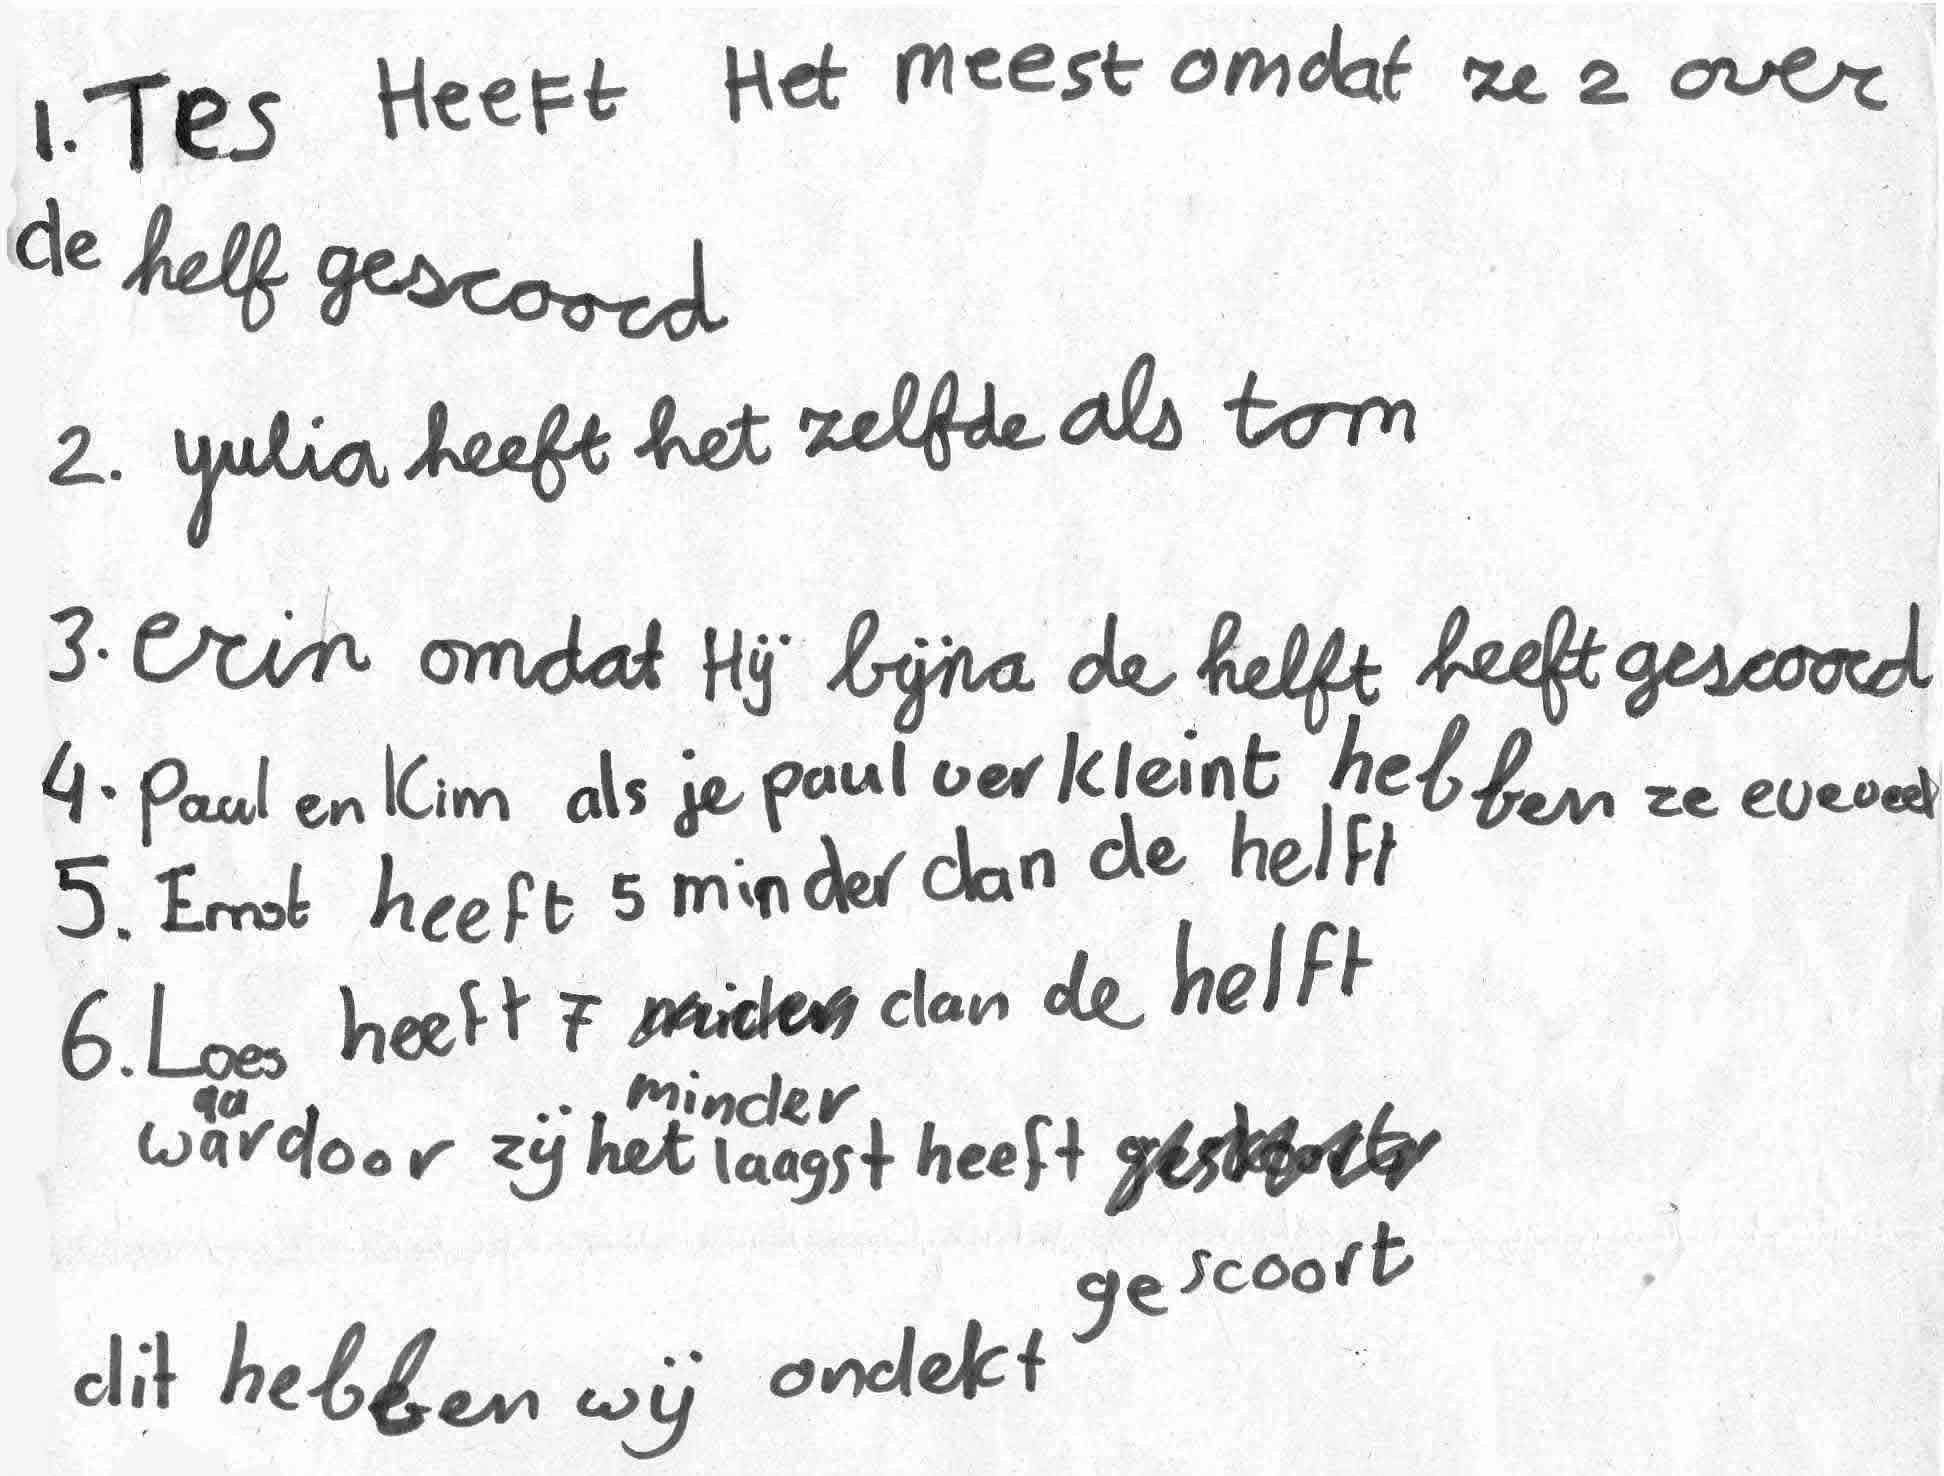 1. Tes Heeft Het meest omdat ze 2 over
de helf gescoord
2. yulia heeft het zelfde als tom
3. erin omdat Hij bijna de helft heeft gescoord
4. Paul en Kim als je paul verkleint hebben ze eveveel
5. Ernst heeft 5 minder dan de helft
6. Loes heeft 7 dan de helft
minder
waardoor zij het laagst heeft
gescoort
dit hebben wij ondekt